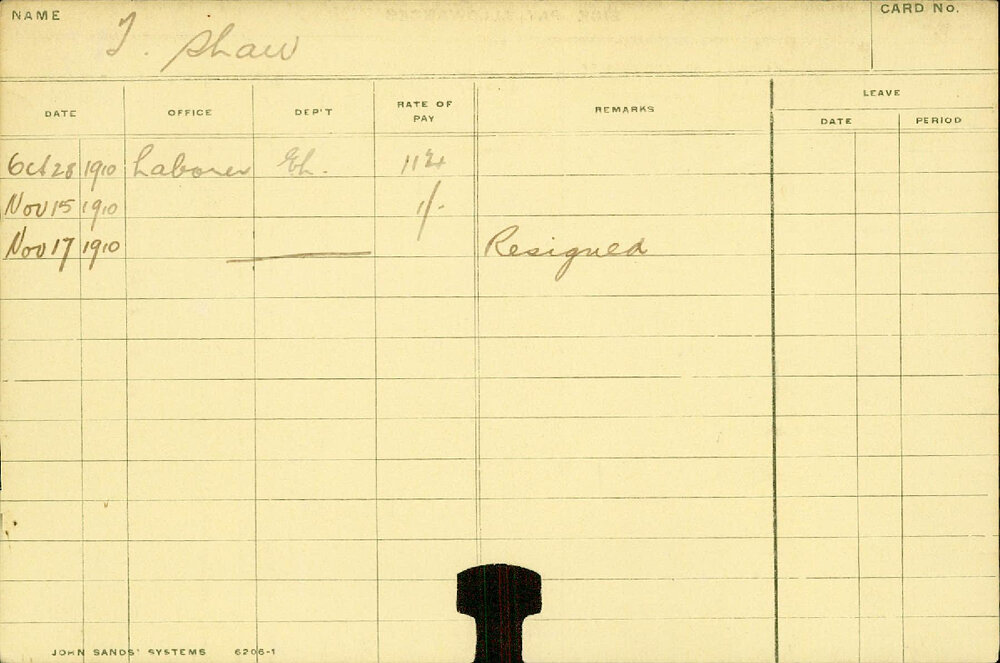 NAME
T. Shaw
CARD No.
DATE OFFICE DEP'T RATE OF PAY REMARKS LEAVE
DATE PERIOD
Oct 28 1910 Laborer Eh.
Nov 15 1910 1/-
Nov 17 1910 Resigned
JOHN SANDS' SYSTEMS 6206-1